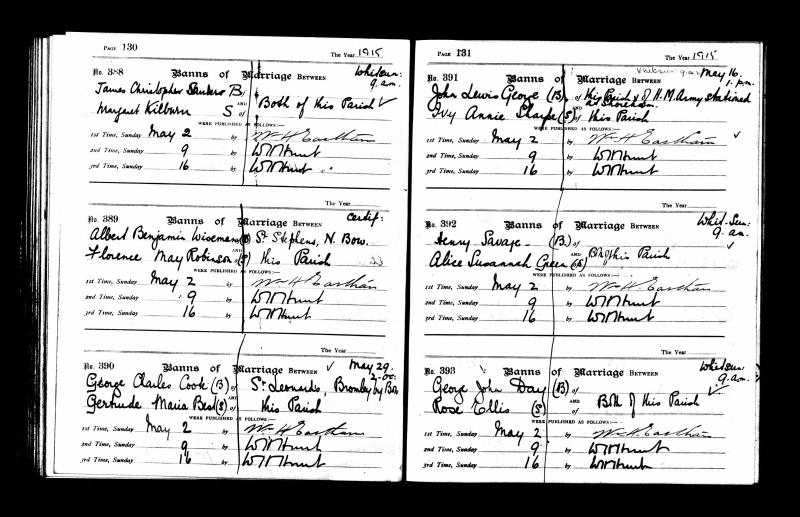 PAGE 130
The Year 1915
No. 388 Banns of Marriage BETWEEN Whitsun:
9 a.m.
James Christopher B of
AND Both of this Parish ✓
Margaret Kilburn S of
WERE PUBLISHED AS FOLLOWS:—
1st Time, Sunday May 2 by Wm H Eastham
2nd Time, Sunday 9 by W M Hunt
3rd Time, Sunday 16 by W M Hunt
The Year
No. 389 Banns of Marriage BETWEEN Certif:
Albert Benjamin Wiseman (B) of St Stephens, N. Bow.
AND
Florence May Robinson (S) of this Parish
WERE PUBLISHED AS FOLLOWS:—
1st Time, Sunday May 2 by Wm H Eastham
2nd Time, Sunday 9 by W M Hunt
3rd Time, Sunday 16 by W M Hunt
The Year
No. 390 Banns of Marriage BETWEEN ✓ May 29.
George Charles Cook (B) of St Leonards, Bromley by Bow
AND
Gertrude Maria Best (S) of this Parish
WERE PUBLISHED AS FOLLOWS:—
1st Time, Sunday May 2 by Wm H Eastham
2nd Time, Sunday 9 by W M Hunt
3rd Time, Sunday 16 by W M Hunt
PAGE 131
The Year 1915
No. 391 Banns of Marriage BETWEEN Whitsun 9 a.m. May 16.
1. p.m.
John Lewis George (B) of this Parish & of H.M. Army stationed
AND at Shoreham.
Ivy Annie Sharpe (S) of this Parish
WERE PUBLISHED AS FOLLOWS:— ✓
1st Time, Sunday May 2 by Wm H Eastham
2nd Time, Sunday 9 by W M Hunt
3rd Time, Sunday 16 by W M Hunt
The Year
No. 392 Banns of Marriage BETWEEN Whit-Sun:
9. am.
Henry Savage (B) of ✓
AND Both of this Parish
Alice Susannah Green (S) of
WERE PUBLISHED AS FOLLOWS:—
1st Time, Sunday May 2 by Wm H Eastham
2nd Time, Sunday 9 by W M Hunt
3rd Time, Sunday 16 by W M Hunt
The Year
No. 393 Banns of Marriage BETWEEN Whitsun
9. a.m.
George John Day (B) of ✓
AND Both of this Parish
Rose Ellis (S) of
WERE PUBLISHED AS FOLLOWS:—
1st Time, Sunday May 2 by Wm H Eastham
2nd Time, Sunday 9 by W M Hunt
3rd Time, Sunday 16 by W M Hunt